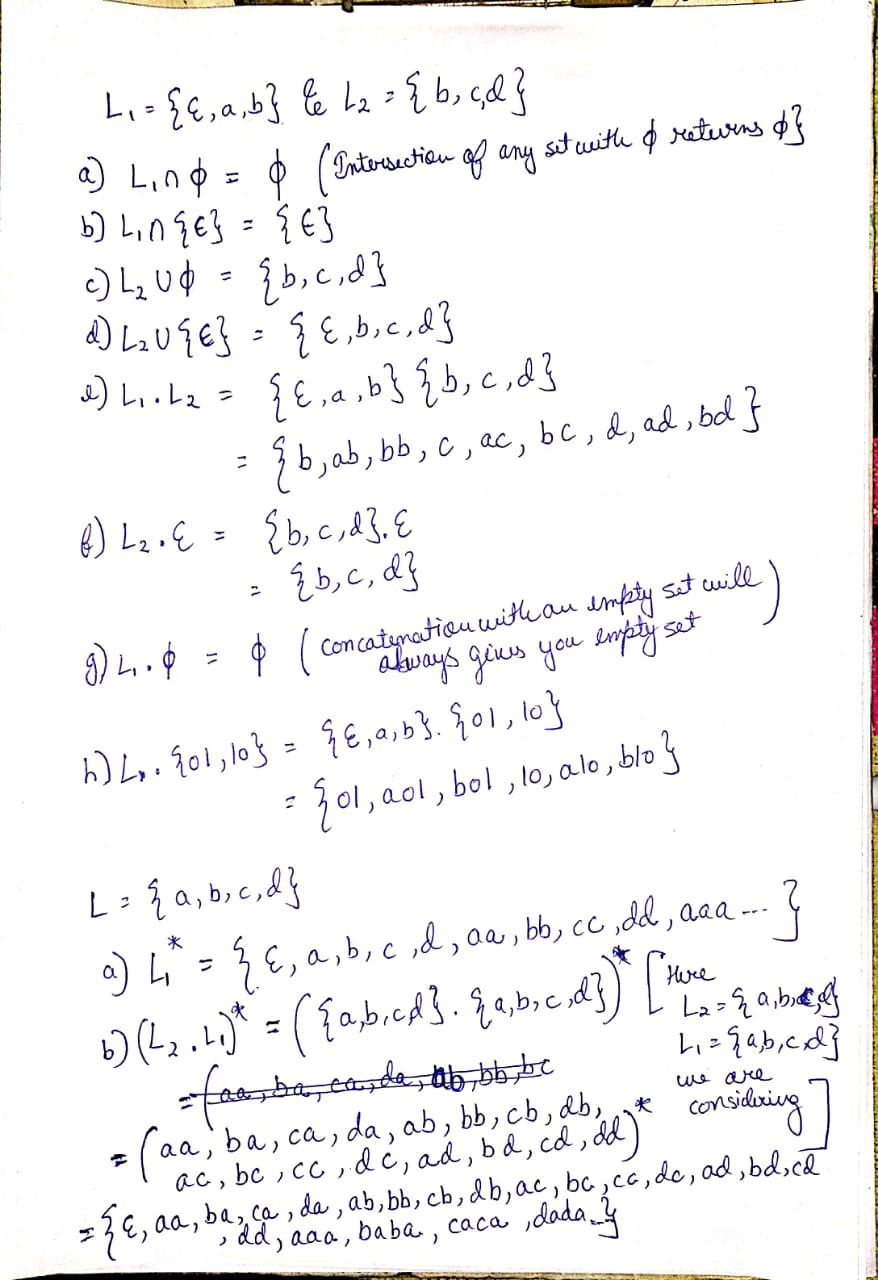 L₁ = {ε, a, b} & L₂ = {b, c, d}
a) L₁ ∩ ϕ = ϕ (Intersection of any set with ϕ returns ϕ}
b) L₁ ∩ {ϵ} = {ϵ}
c) L₂ ∪ ϕ = {b, c, d}
d) L₂ ∪ {ϵ} = {ε, b, c, d}
e) L₁ . L₂ = {ε, a, b} {b, c, d}
= {b, ab, bb, c, ac, bc, d, ad, bd}
f) L₂ . ε = {b, c, d}. ε
= {b, c, d}
g) L₁ . ϕ = ϕ (concatenation with an empty set will
always gives you empty set)
h) L₁ . {01, 10} = {ε, a, b}. {01, 10}
= {01, a01, b01, 10, a10, b10}
L = {a, b, c, d}
a) L₁* = {ε, a, b, c, d, aa, bb, cc, dd, aaa ---}
b) (L₂ . L₁)* = ({a, b, c, d} . {a, b, c, d})* [Here
L₂ = {a, b, c, d}
L₁ = {a, b, c, d}
we are
considering]
= (aa, ba, ca, da, ab, bb, bc
= (aa, ba, ca, da, ab, bb, cb, db,
ac, bc, cc, dc, ad, bd, cd, dd)*
= {ε, aa, ba, ca, da, ab, bb, cb, db, ac, bc, cc, dc, ad, bd, cd
, dd, aaa, baba, caca, dada --}